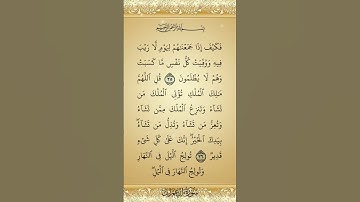 بِسْمِ اللَّهِ الرَّحْمَٰنِ الرَّحِيمِ
فَكَيْفَ إِذَا جَمَعْنَاهُمْ لِيَوْمٍ لَّا رَيْبَ
فِيهِ وَوُفِّيَتْ كُلُّ نَفْسٍ مَّا كَسَبَتْ
وَهُمْ لَا يُظْلَمُونَ ٢٥ قُلِ اللَّهُمَّ
مَالِكَ الْمُلْكِ تُؤْتِي الْمُلْكَ مَن
تَشَاءُ وَتَنزِعُ الْمُلْكَ مِمَّن تَشَاءُ
وَتُعِزُّ مَن تَشَاءُ وَتُذِلُّ مَن تَشَاءُ
بِيَدِكَ الْخَيْرُ إِنَّكَ عَلَىٰ كُلِّ شَيْءٍ
قَدِيرٌ ٢٦ تُولِجُ اللَّيْلَ فِي النَّهَارِ
وَتُولِجُ النَّهَارَ فِي اللَّيْلِ
سورة آل عمران